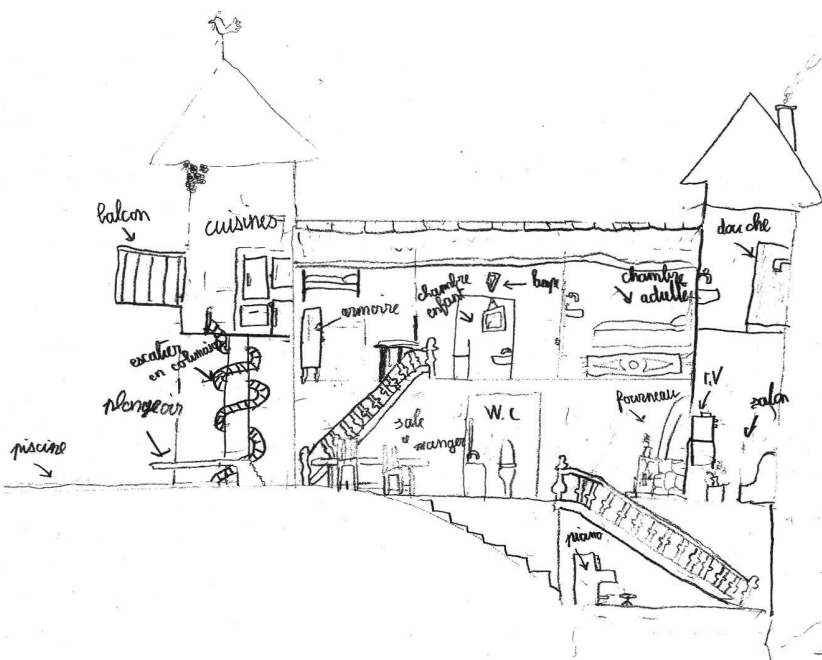 balcon
cuisines
douche
chambre
enfant
lampe
chambre
adulte
armoire
escalier
en colimaçon
plongeoir
piscine
sale
à manger
W.C
fourneau
T.V
salon
piano